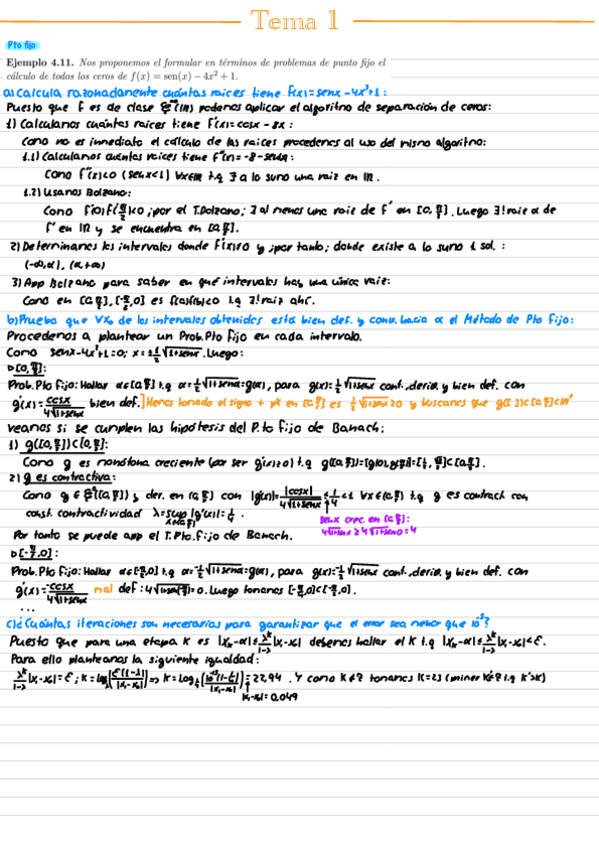 Tema 1
Pto fijo
Ejemplo 4.11. Nos proponemos el formular en términos de problemas de punto fijo el
cálculo de todos los ceros de f(x) = sen(x) − 4x² + 1.
a) Calcula razonadamente cuántas raíces tiene f(x)=senx-4x²+1:
Puesto que f es de clase (IR) podemos aplicar el algoritmo de separación de ceros:
1) Calculamos cuántas raíces tiene f'(x)=cosx-8x:
Como no es inmediato el cálculo de las raíces procedemos al uso del mismo algoritmo:
1.1) Calculamos cuántas raíces tiene f''(x)=-8-senx:
Como f''(x)<0 (senx<1) ∀x∈IR t.q ∃ a lo sumo una raíz en IR.
1.2) Usamos Bolzano:
Como f'(0)f'(π/2)<0 ; por el T.Bolzano; ∃ al menos una raíz de f' en [0,π/2]. Luego ∃! raíz α de
f' en IR y se encuentra en [0,π/2].
2) Determinamos los intervalos donde f'(x)≠0 y ; por tanto; donde existe a lo sumo 1 sol. :
(-∞,α), (α,+∞)
3) App Bolzano para saber en qué intervalos hay una única raíz:
Como en [0,π/2], [-π/2,0] es f(a)f(b)<0 t.q ∃! raíz ahí.
b) Prueba que ∀x₀ de los intervalos obtenidos está bien def. y conv. hacia α el Método de Pto Fijo:
Procedemos a plantear un Prob. Pto Fijo en cada intervalo.
Como senx-4x²+1=0; x=±½√1+senx. Luego:
▷[0,π/2]:
Prob. Pto Fijo: Hallar α∈[0,π/2] t.q α=½√1+senα=g(α), para g(x)=½√1+senx cont., deriv. y bien def. con
g'(x)=cosx/4√1+senx bien def.] Hemos tomado el signo + pq en [0,π/2] es ½√1+senx≥0 y buscamos que g([0,π/2])⊂[0,π/2]
veamos si se cumplen las hipótesis del P.to Fijo de Banach:
1) g([0,π/2])⊂[0,π/2]:
Como g es monótona creciente (por ser g'(x)≥0) t.q g([0,π/2])=[g(0),g(π/2)]=[½,√2/2]⊂[0,π/2].
2) g es contractiva:
Como g ∈ ([0,π/2]) y der. en (0,π/2) con |g'(x)|=|cosx|/4√1+senx≤¼<1 ∀x∈(0,π/2) t.q g es contract con
const. contractividad λ=sup |g'(x)|=¼.
x∈(0,π/2)
senx crec. en [0,π/2]:
4√1+senx≥4√1+sen0=4
Por tanto se puede app el T.Pto.Fijo de Banach.
▷[-π/2,0]:
Prob. Pto Fijo: Hallar α∈[-π/2,0] t.q α=-½√1+senα=g(α), para g(x)=-½√1+senx cont., deriv. y bien def. con
g'(x)=-cosx/4√1+senx mal def: 4√1+sen(-π/2)=0. Luego tomamos
...
c) ¿Cuántas iteraciones son necesarias para garantizar que el error sea menor que 10⁻⁵?
Puesto que para una etapa K es |x_K-α|≤λᴷ/1-λ|x₁-x₀| debemos hallar el K t.q |x_K-α|≤λᴷ/1-λ|x₁-x₀|<ε.
Para ello planteamos la siguiente igualdad:
λᴷ/1-λ|x₁-x₀|=ε; K=log_λ(ε(1-λ)/|x₁-x₀|) ⇒ K=log
=22,94 . Y como K∉ℕ tomamos K=23
|x₁-x₀|=0.049